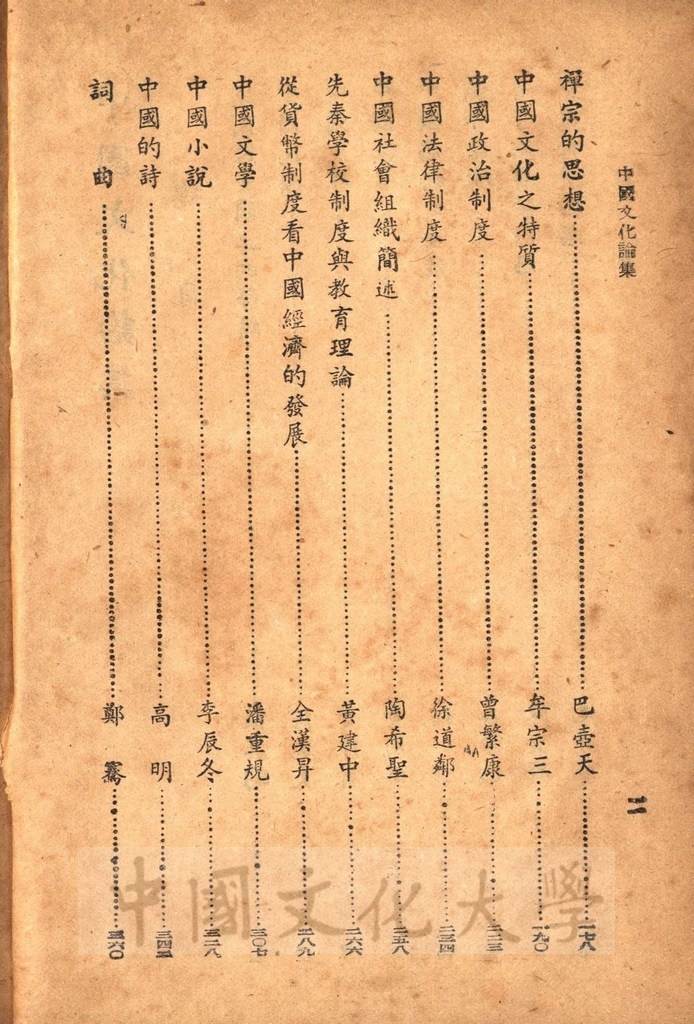 中國文化論集
二
禪宗的思想 巴壺天 一七八
中國文化之特質 牟宗三 一九〇
中國政治制度 曾繁康 二二三
中國法律制度 徐道鄰 二三四
中國社會組織簡述 陶希聖 二五八
先秦學校制度與教育理論 黃建中 二六六
從貨幣制度看中國經濟的發展 全漢昇 二八九
中國文學 潘重規 三〇七
中國小說 李辰冬 三二八
中國的詩 高明 三四三
詞曲 鄭騫 三六〇
中國文化大學